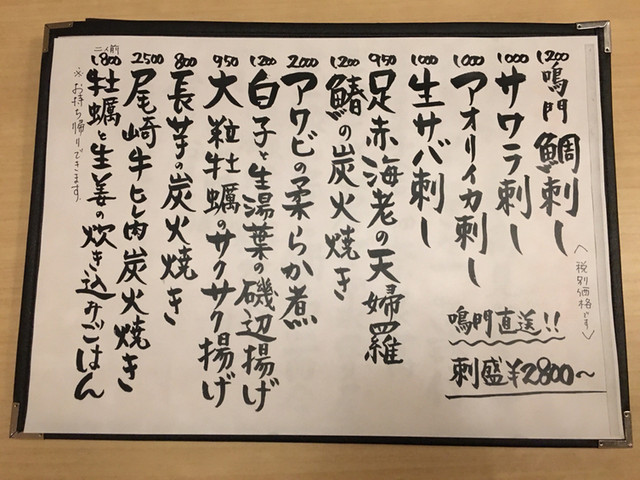 〈税別価格です〉
1200 鳴門鯛刺し
1000 サワラ刺し
1000 アオリイカ刺し
1000 生サバ刺し
鳴門直送!!
刺盛¥2800〜
950 足赤海老の天婦羅
1200 鰆の炭火焼き
2000 アワビの柔らか煮
1200 白子と生湯葉の磯辺揚げ
950 大粒牡蠣のサクサク揚げ
800 長芋の炭火焼き
2500 尾崎牛ヒレ肉炭火焼き
二人前
1800 牡蠣と生姜の炊き込みごはん
※お持ち帰りできます。